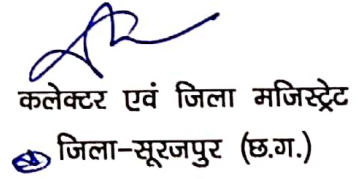 कलेक्टर एवं जिला मजिस्ट्रेट
जिला-सूरजपुर (छ.ग.)